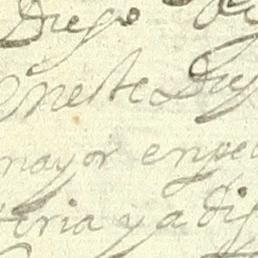 Diego de
en este Di
mayor en pe
teria y a dig